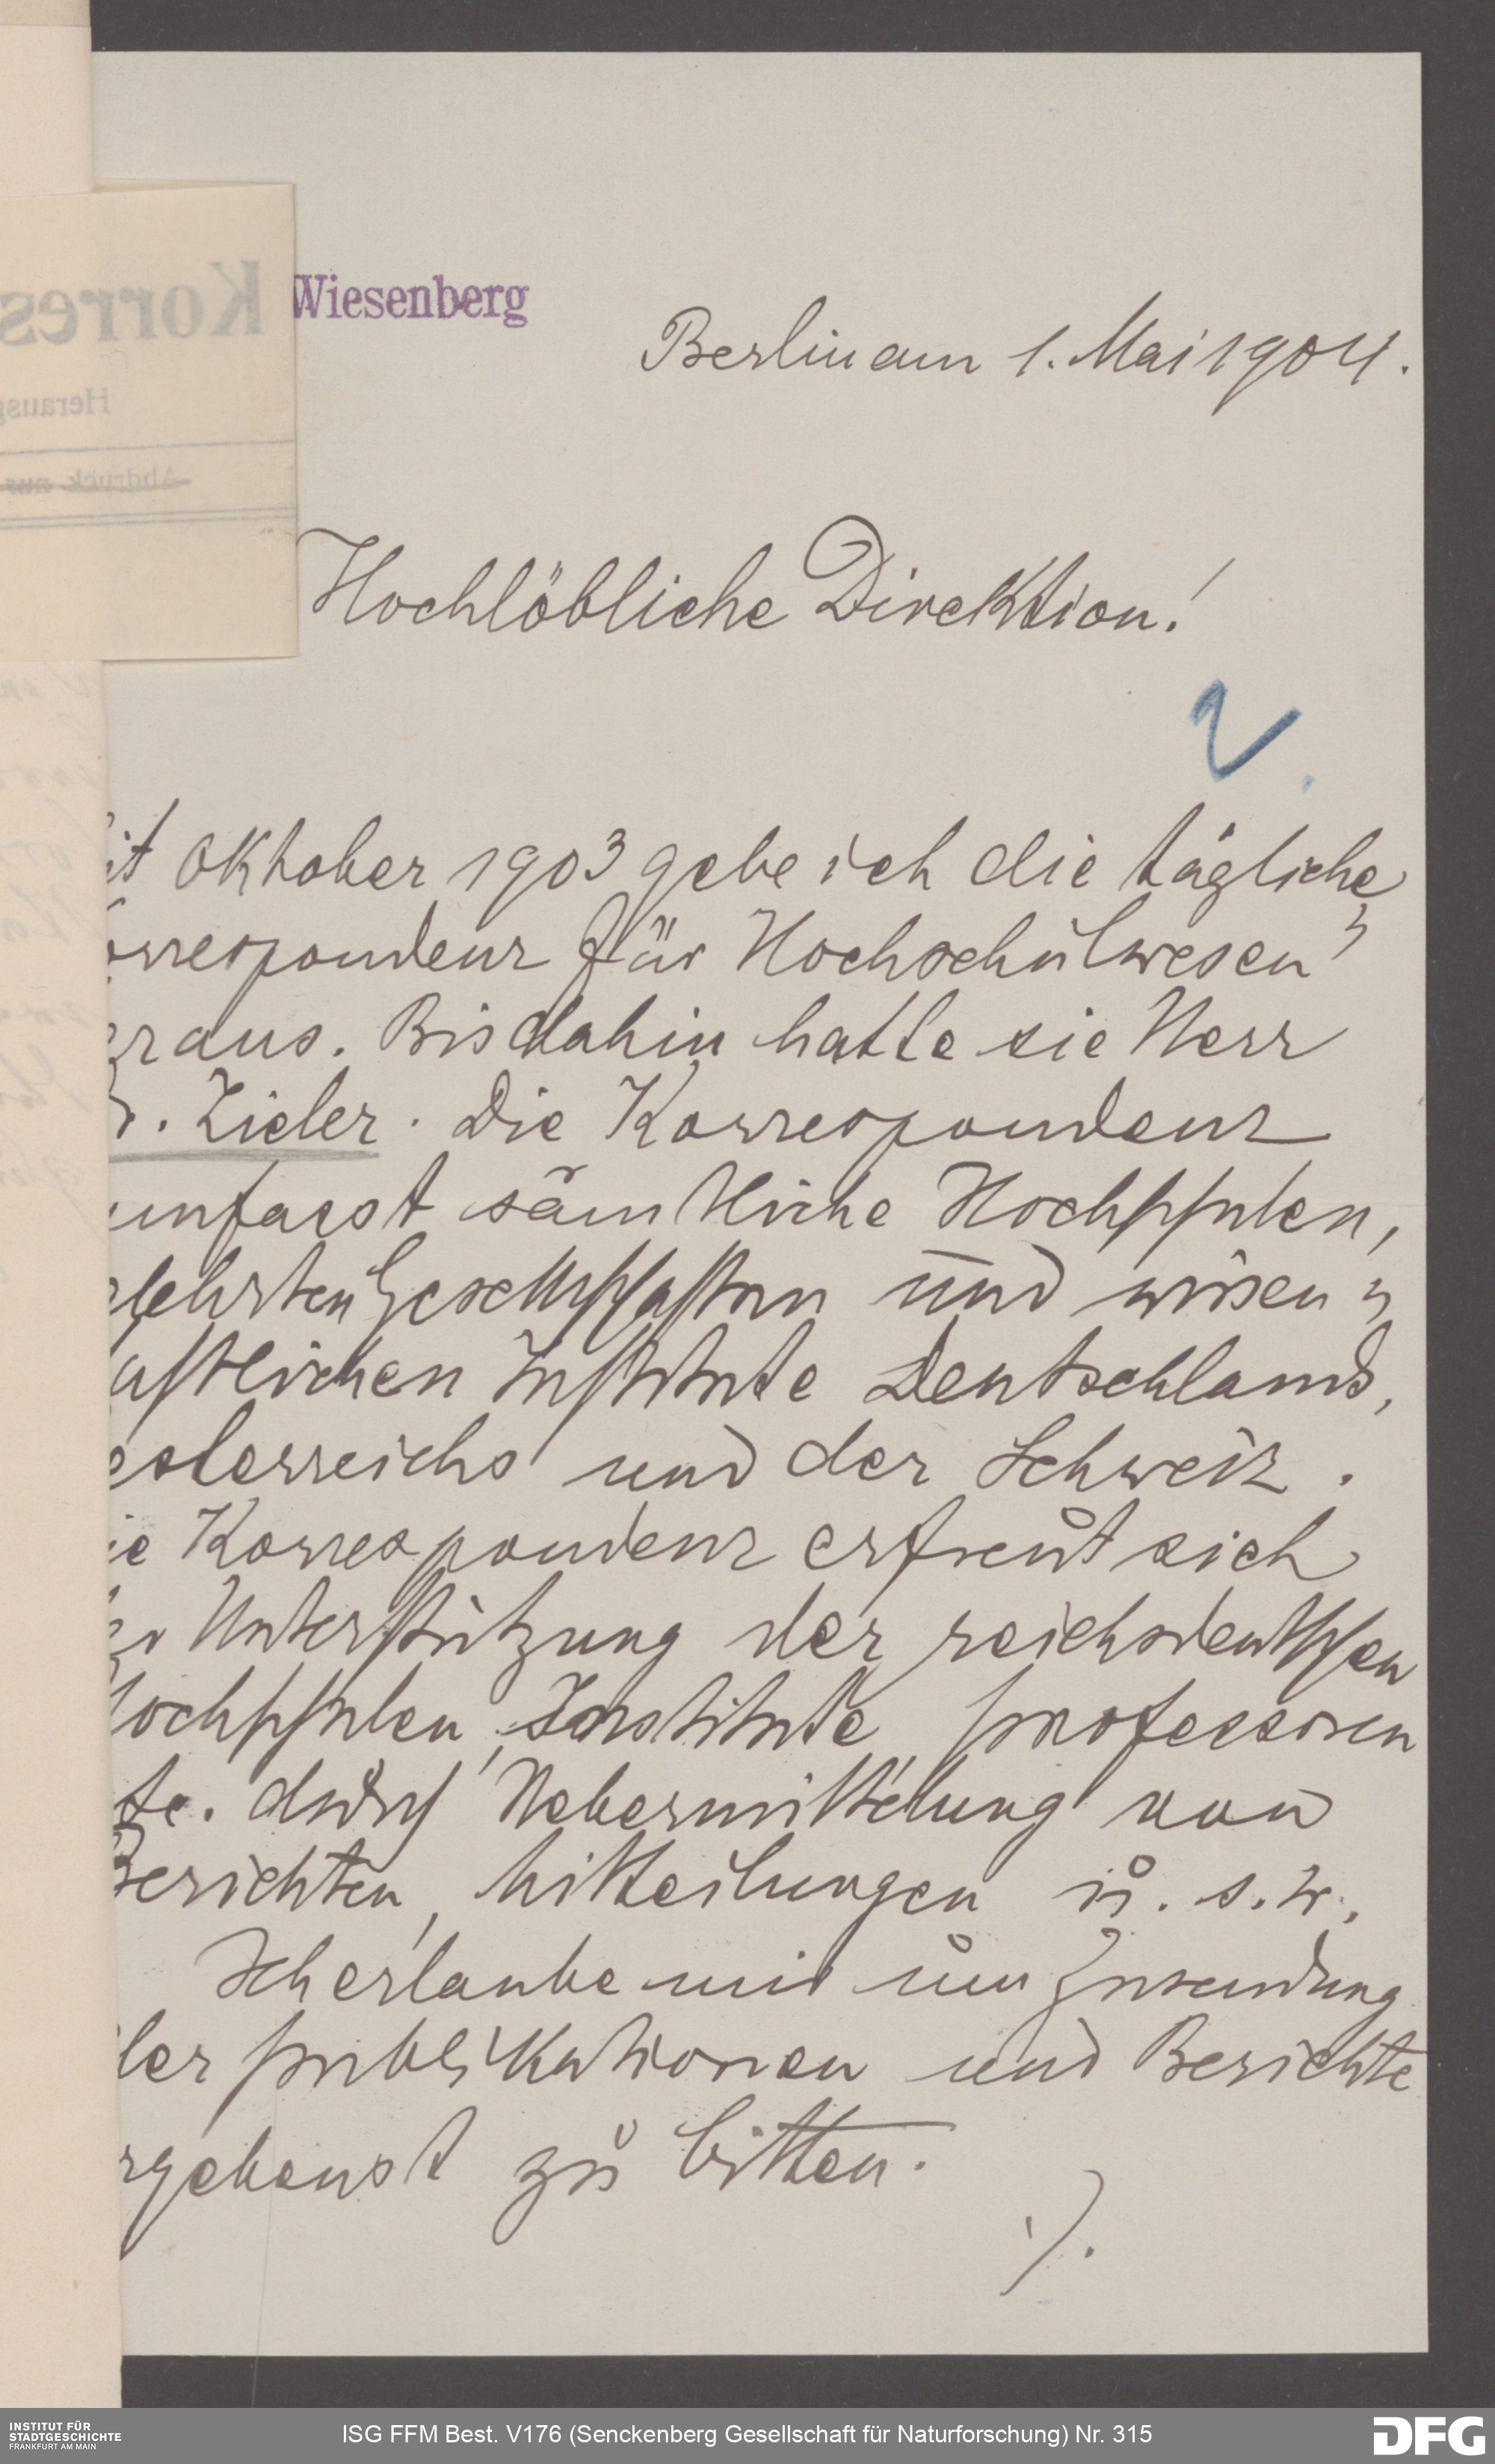 Wiesenberg
Berlin am 1. Mai 1904.
Hochlöbliche Direktion!
it Oktober 1903 gebe ich die tägliche
orrespondenz für Hochschulwesen"
eraus. Bis dahin hatte sie Herr
r. Zieler. Die Korrespondenz
umfasst sämtliche Hochschulen,
elehrten Gesellschaften und wissen-
aftlichen Institute Deutschlands,
esterreichs und der Schweiz.
ie Korrespondenz erfreut sich
er Unterstützung der reichsdeutschen
ochschulen, Institute, Professoren
te. durch Uebermittelung von
Berichten, Mitteilungen u. s. w.
Ich erlaube mir um Zusendung
ller Publikationen und Berichte
rgebenst zu bitten.
./.
Korres
Herausg
Abdruck nur
INSTITUT FÜR
STADTGESCHICHTE
FRANKFURT AM MAIN
ISG FFM Best. V176 (Senckenberg Gesellschaft für Naturforschung) Nr. 315
DFG